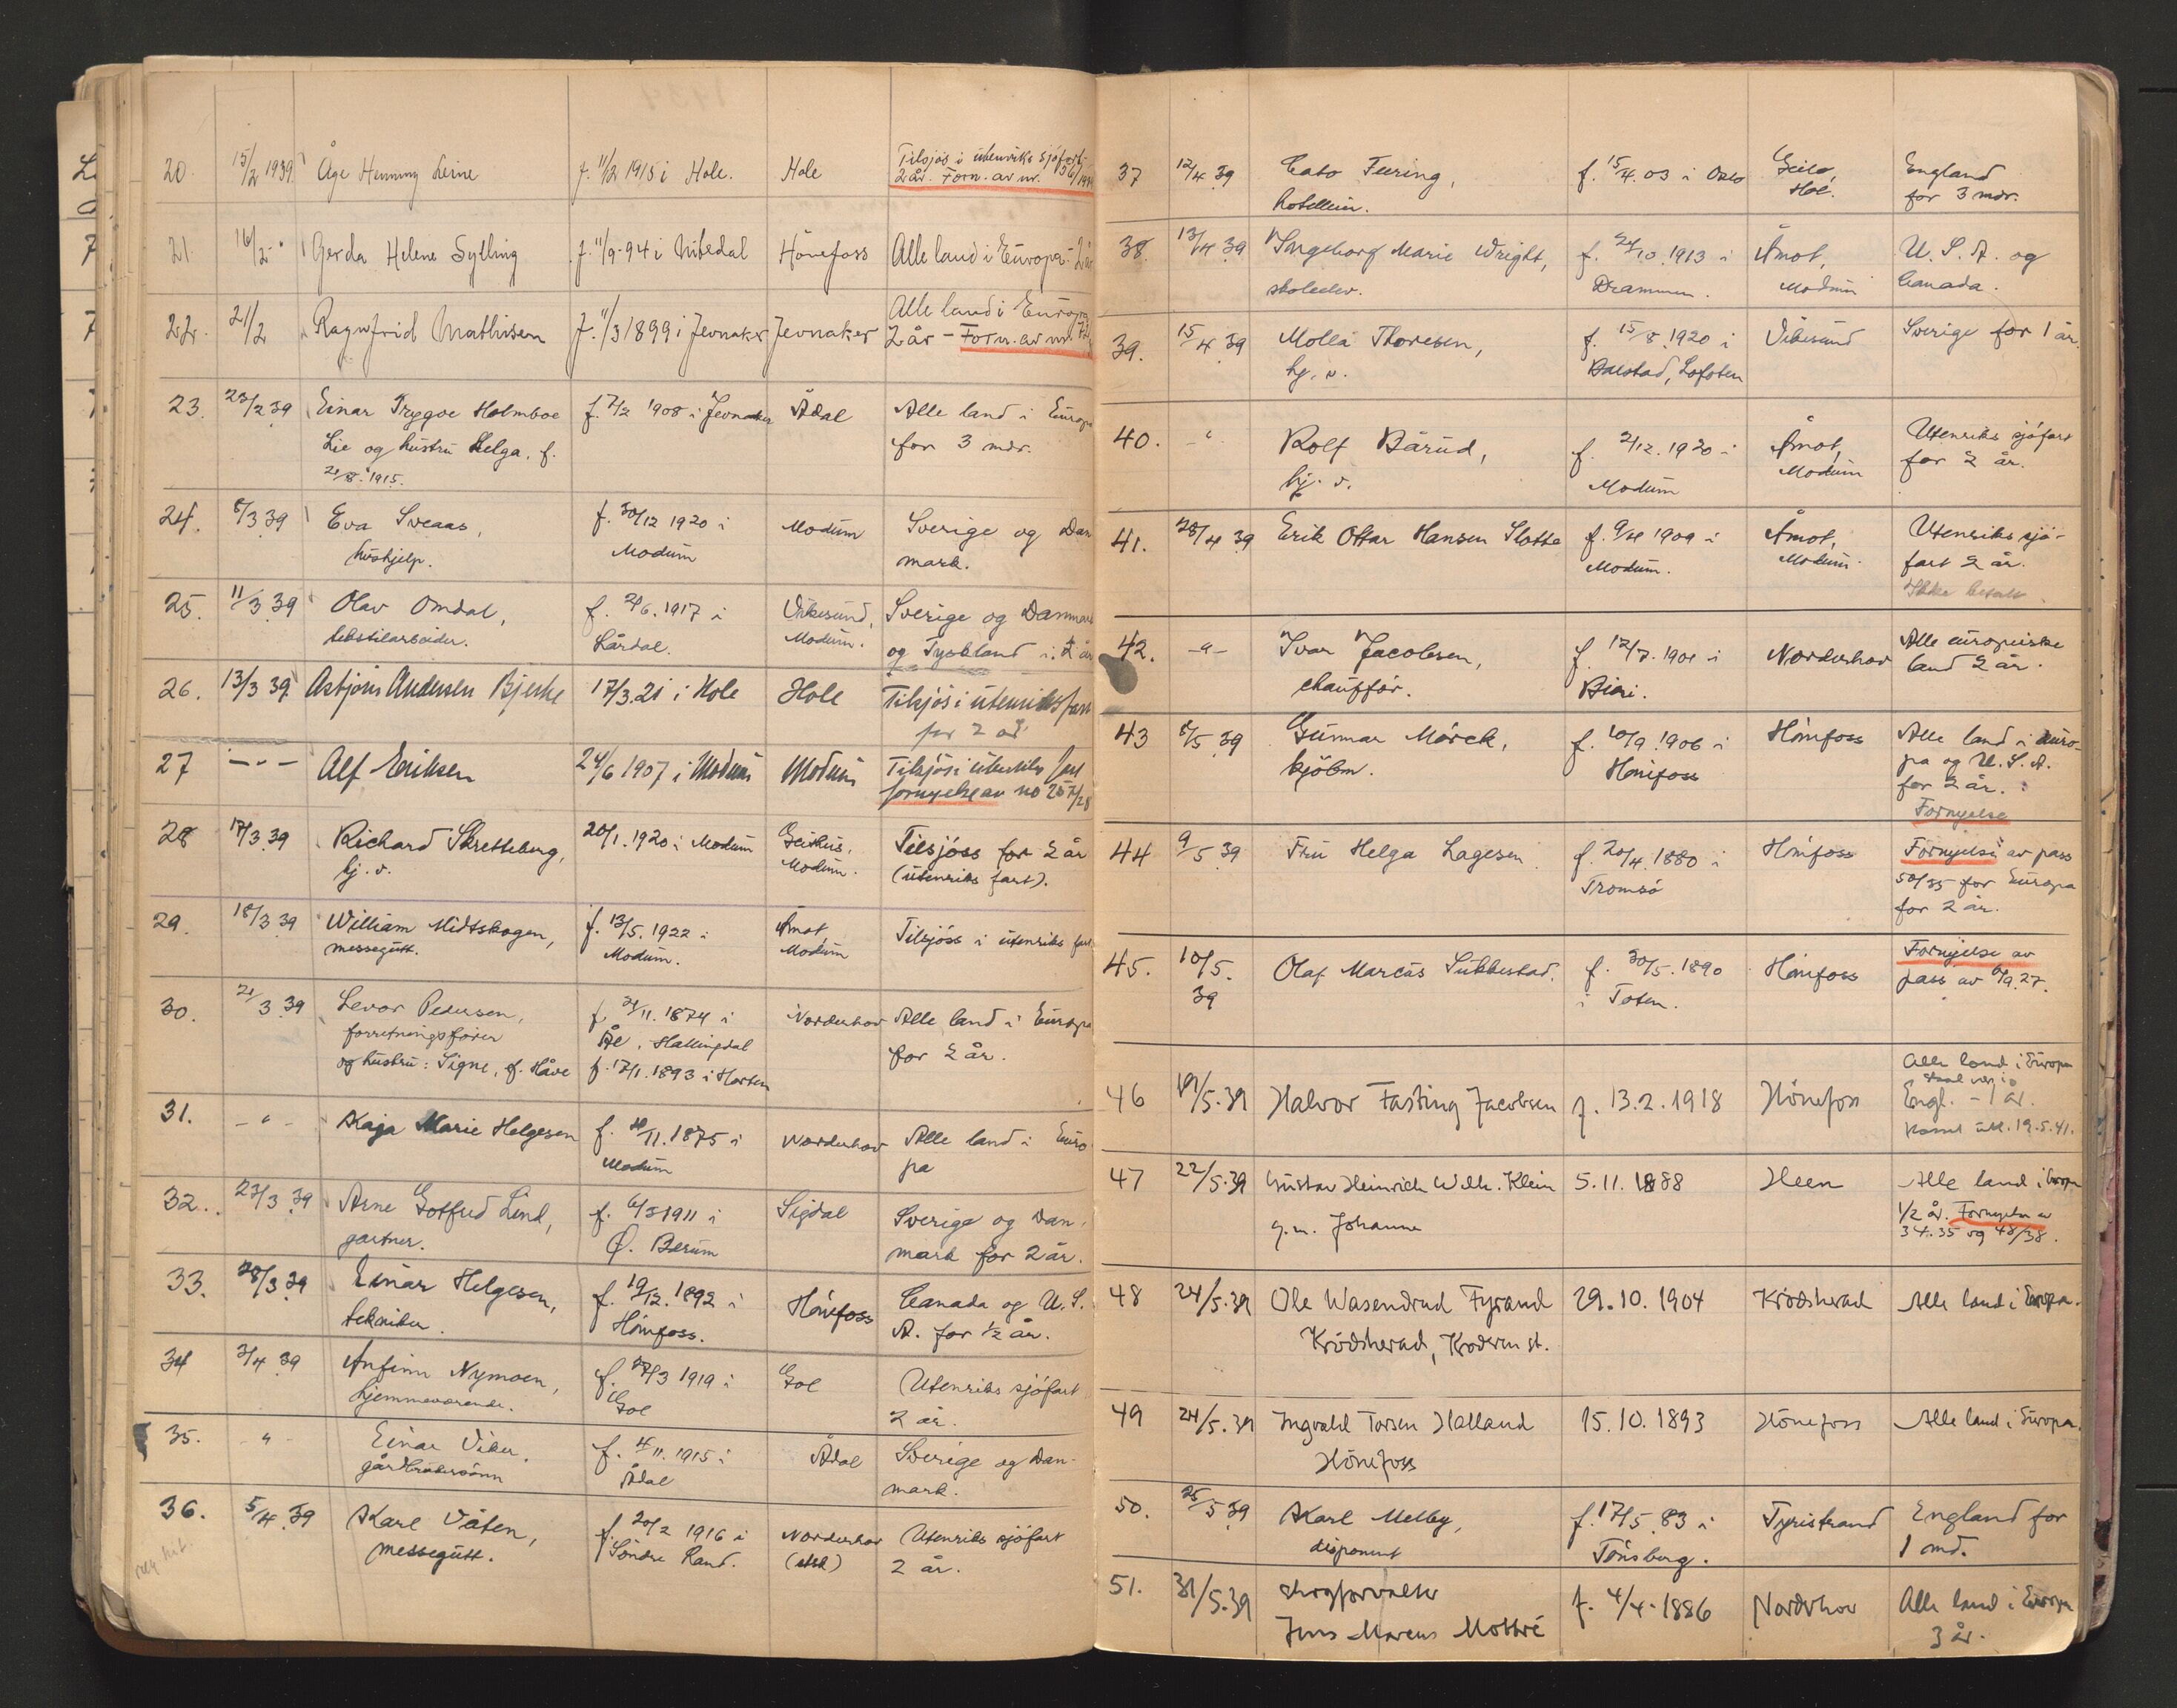 20. 15/2 1939 Åge Henning Leine f. 11/2 1915 i Hole. Hole Tilsjøs i utenriks sjøfart
2 år. Forn. av nr.
21. 16/2 -"- Gerda Helene Sylling f. 11/9-94 i Nittedal Hönefoss Alle land i Europa - 2 år
22. 21/2 Ragnfrid Mathisen f. 11/3 1899 i Jevnaker Jevnaker Alle land i Europa
2 år - Forn. av nr.
23. 23/2 39 Einar Trygve Holmboe f. 7/2 1908 i Jevnaker Ådal Alle land i Europa
Lie og hustru Helga, f. for 3 mdr.
21/8.1915.
24. 8/3 39 Eva Sveaas, f. 30/12 1920 i Modum Sverige og Dan
hushjelp. Modum mark.
25. 11/3 39 Olav Omdal, f. 2/6.1917 i Vikesund, Sverige og Danmark
tekstilarbeider. Lårdal. Modum. og Tyskland i 2 år
26. 13/3 39 Asbjörn Andersen Bjerke 17/3.21 i Hole Hole Tilsjös i utenriksfart
for 2 år
27 -"- Alf Eriksen 24/6 1907 i Modum Modum Tilsjös i utenriks fart
fornyelse av no 257/28
28 17/3 39 Richard Skretteberg, 20/1.1920 i Modum Geithus, Tilsjöss for 2 år
hj. v. Modum. (utenriks fart).
29. 18/3 39 William Midtskogen, f. 13/5.1922 i Åmot Tilsjöss i utenriks fart
messegutt. Modum. Modum
30. 21/3 39 Levor Pedersen, f. 21/11.1874 i Norderhov Alle land i Europa
forretningsförer Ål, Hallingdal for 2 år.
og hustru: Signe, f. Håve f. 17/1.1893 i Horten
31. -"- Kaja Marie Helgesen f. /11.1875 i Norderhov Alle land i Euro
Modum pa
32. 23/3 39 Arne Gotfred Lind, f. 6/5 1911 i Sigdal Sverige og Dan-
gartner. Ø. Bærum mark for 2 år.
33. 28/3 39 Einar Helgesen, f. 19/12.1892 i Hönefoss Canada og U.S.
tekniker. Hönefoss. A. for ½ år.
34 3/4 39 Anfinn Nymoen, f. 27/3 1919 i Gol Utenriks sjöfart
hjemmeværende. Gol 2 år.
35. -"- Einar Viker, f. 4/11.1915 i Ådal Sverige og Dan-
gårdbrukersönn Ådal mark.
36. 5/4 39 Karl Våten, f. 20/2 1916 i Norderhov Utenriks sjöfart
messegutt. Söndre Land. 2 år.
37 12/4 39 Cato Tuering, f. 15/4.03 i Oslo Geilo, England
Hol. for 3 mdr.
38. 13/4 39 Ingeborg Marie Wright, f. 24/10.1913 i Åmot, U.S.A. og
skoleelev. Drammen. Modum Canada.
39. 15/4 39 Molla Thoresen, f. 15/8.1920 i Vikesund Sverige for 1 år.
hj. v. Balstad, Lofoten
40. -"- Rolf Bårud, f. 2/12.1920 i Åmot, Utenriks sjöfart
hj. v. Modum Modum for 2 år.
41. 28/4 39 Erik Ottar Hansen Slotte f. 9/4 1909 i Åmot, Utenriks sjö-
Modum. Modum. fart 2 år.
Ikke betalt.
42. -"- Ivar Jacobsen, f. 12/7.1901 i Norderhov Alle europeiske
chaufför. Biri. land 2 år.
43 8/5 39 Gunnar Mörck, f. 10/9.1906 i Hönefoss Alle land i Euro-
kjöbm. Hönefoss pa og U.S.A.
for 2 år.
Fornyelse
44 9/5 39 Fru Helga Lagesen f. 20/4.1880 i Hönefoss Fornyelse av pass
Tromsö 50/35 for Europa
for 2 år.
45. 10/5. Olaf Marcus Sukkestad. f. 30/5.1890 Hönefoss Fornyelse av
39 i Toten. pass av 6/9.27.
46 19/5.39 Halvor Fasting Jacobsen f. 13.2.1918 Hönefoss Alle land i Europa
Engl. - 1 år.
19.5.41.
47 22/5.39 Gustav Heinrich Wilh. Klein 5.11.1888 Heen Alle land i Europa
g.m. Johanne 1/2 år. Fornyelse av
34.35 og 48/38.
48 24/5.39 Ole Wasendrud Fyrand 29.10.1904 Krödsherad Alle land i Europa.
Krödsherad, Kröderen st.
49 24/5.39 Ingvald Torsen Halland 15.10.1893 Hönefoss Alle land i Europa.
Hönefoss
50. 25/5 39 Karl Melby, f. 17/5.83 i Tyristrand England for
disponent Tönsberg. 1 md.
51. 31/5.39 Skogforvalter f. 4/4.1886 Norderhov Alle land i Europa
Jens Marcus Mottré 3 år.